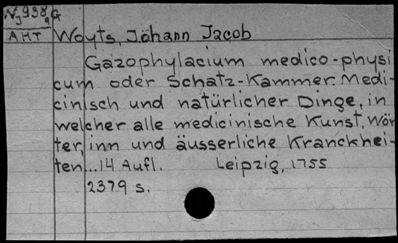 Nj 938aG
AMT Woyts, Johann Jacob
Gazophylacium medico-physi
cum oder Schatz-Kammer Medi-
cinisch und natürlicher Dinge, in
welcher alle medicinische Kunst, Wör-
ter, inn und äusserliche Kranckhei-
ten...14 Aufl. Leipzig, 1755
2379 s.